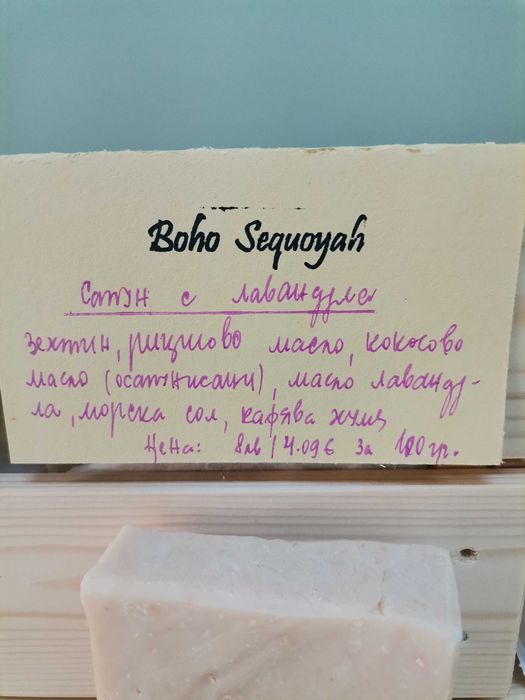 Boho Sequoyah
Сапун с лавандула
зехтин, рициново масло, кокосово
масло (осапунисани), масло лаванду-
ла, морска сол, кафява
Цена: 8лв / 4.09€ за 100гр.